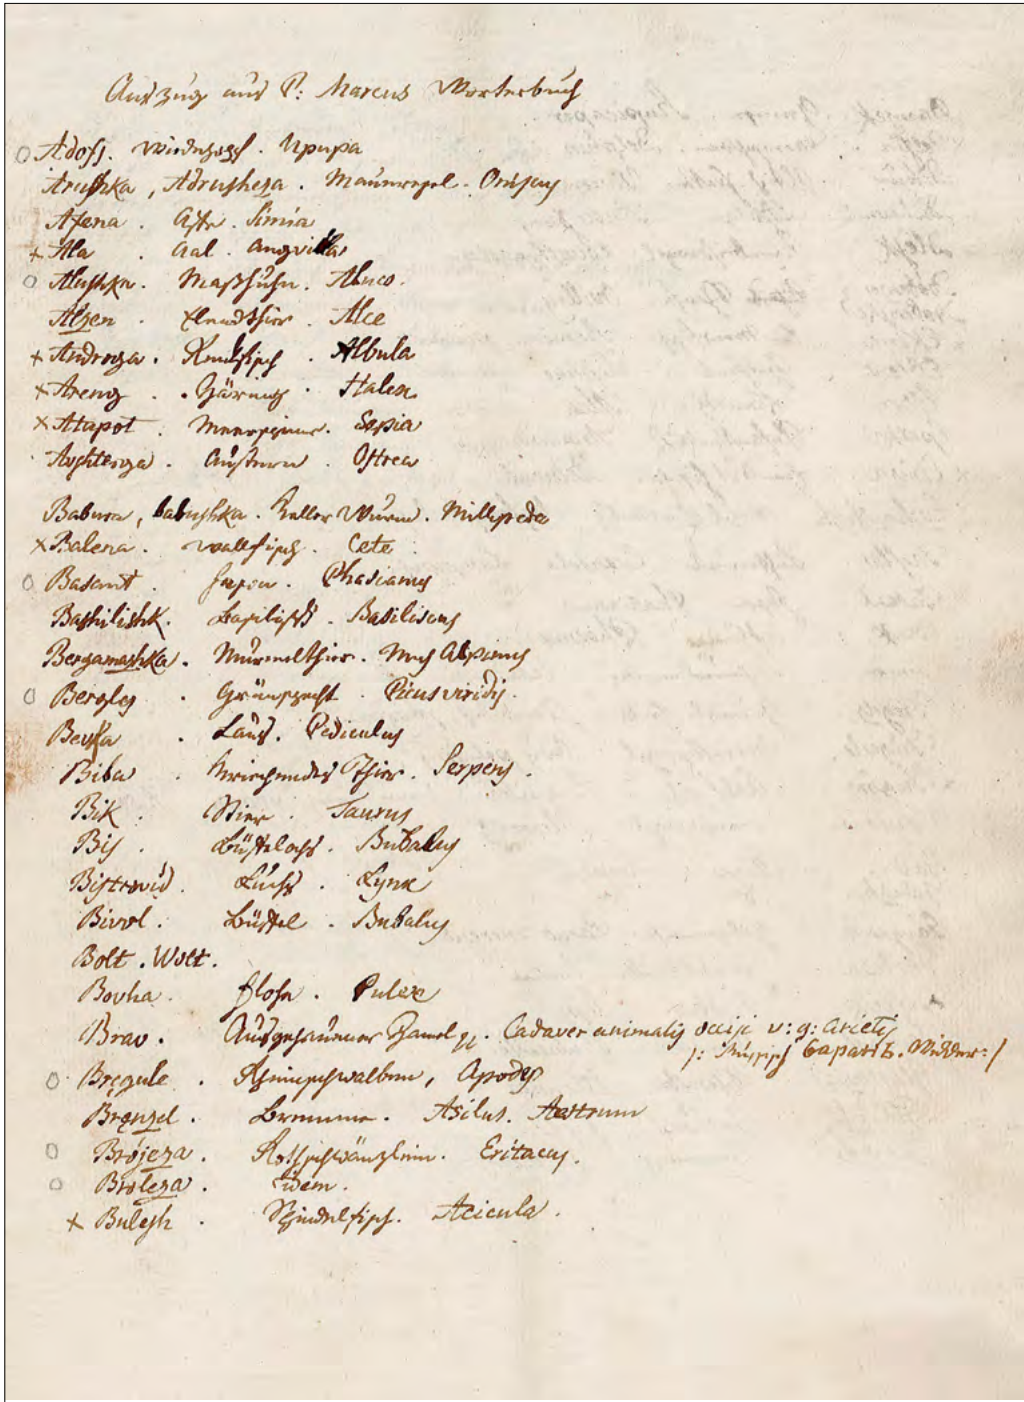 Auszug aus P: Marcus Wörterbuch
O Adoff. Wiedhopf. Upupa
Arushka, Adrusheza.
Afena. Affe. Simia
+ Ala. Aal. Angvilla
O Alushka. Aluco.
Alzen. Elendthier. Alce
+ Androga. Albula
× Areng. Häring. Halex
× Atapot. Sepia
Aushterza. Austern. Ostrea
Babura, babushka. Keller Wurm. Millipeda
× Balena. Wallfisch. Cete
O Basant. Fasan. Phasianus
Bashilishk. Basilisk. Basiliscus
Bergamashka. Murmelthier. Mus Alpinus
O Bergles. Grünspecht. Picus viridis.
Laus. Pediculus
Biba. Kriechendes Thier. Serpens.
Bik. Stier. Taurus
Bis. Büffelochs. Bubalus
Bistrovid. Luchs. Lynx
Bivol. Büffel. Bubalus
Bolt. Wolt.
Bovha. Flohe. Pulex
Brav. Ausgehauener Hamel Cadaver animalis occisi v: g: arietis
/: Russisch Widder: /
O Bregule. Rheinschwalben, Apodes
Brenzel. Bremme. Asilus. Aestrum
O Brojeza. Rothschwänzlein. Eritacus.
O Broleza. idem.
+ Bulesh. Spindelfisch. Acicula.